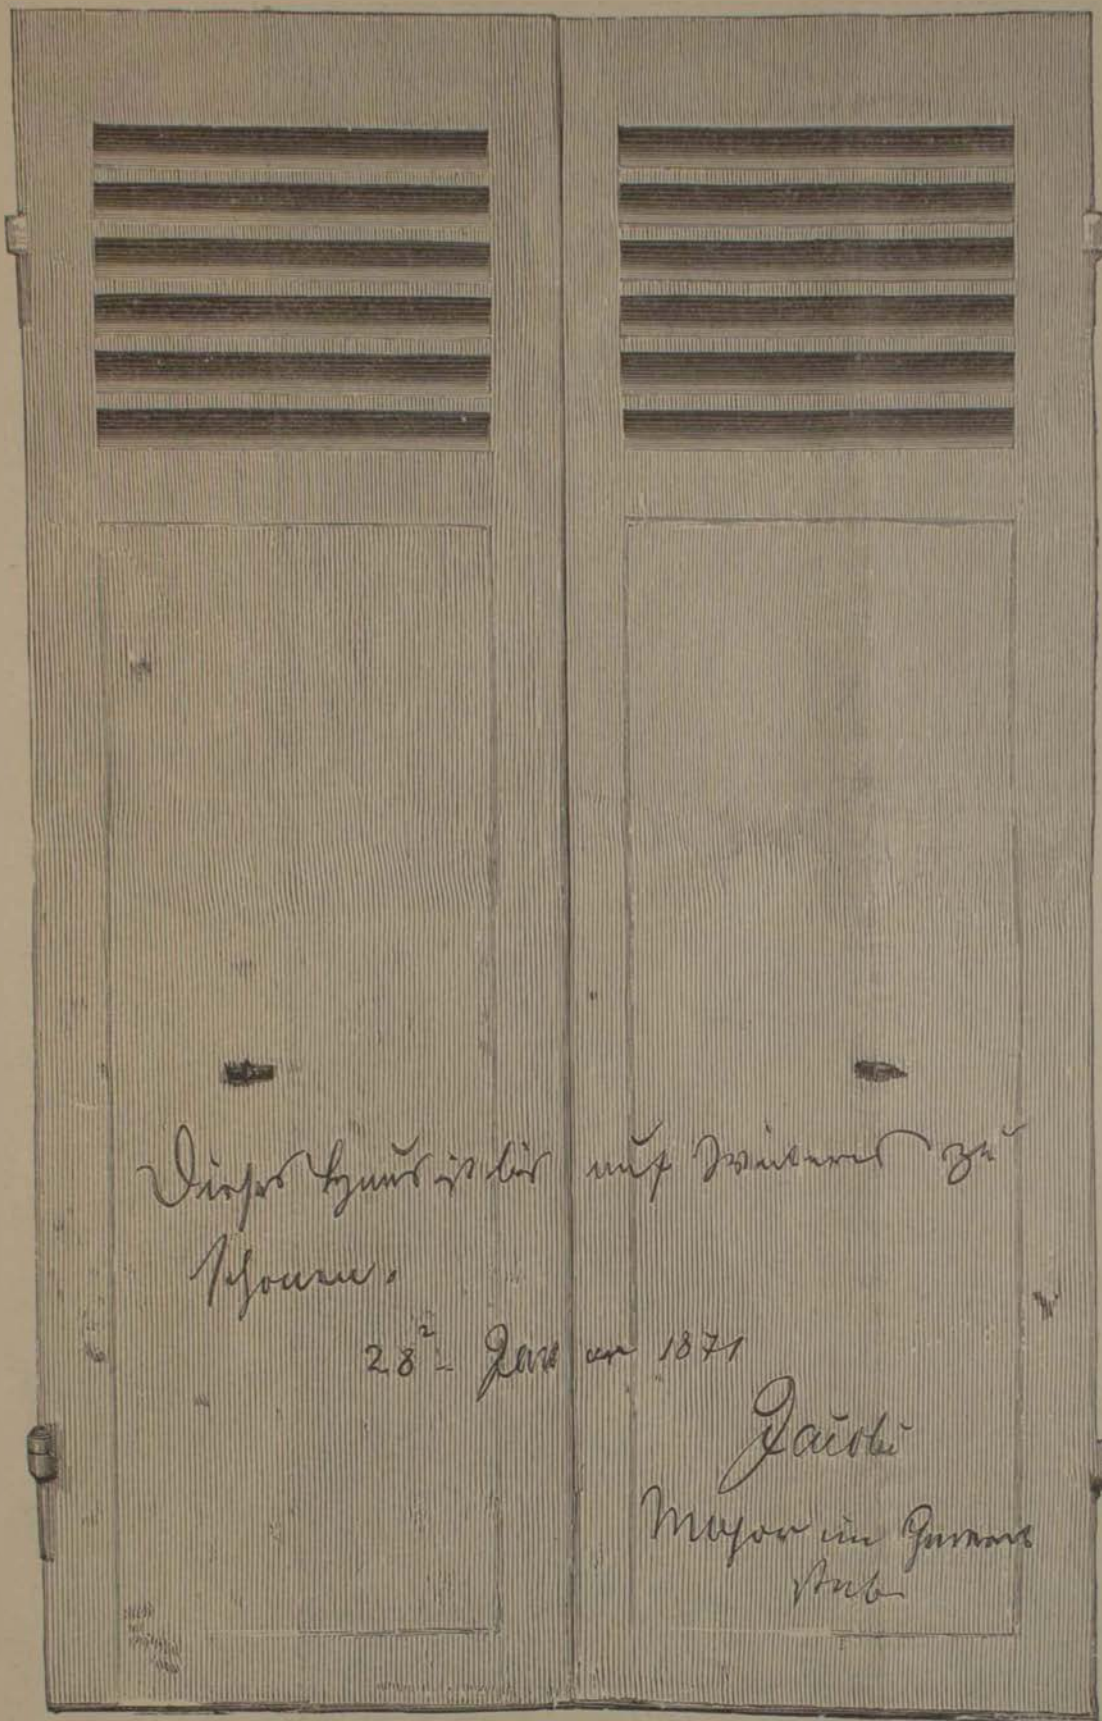 Dieses Haus ist bis auf Weiteres zu
schonen.
28t Januar 1871
Jacobi
Major im General
stab